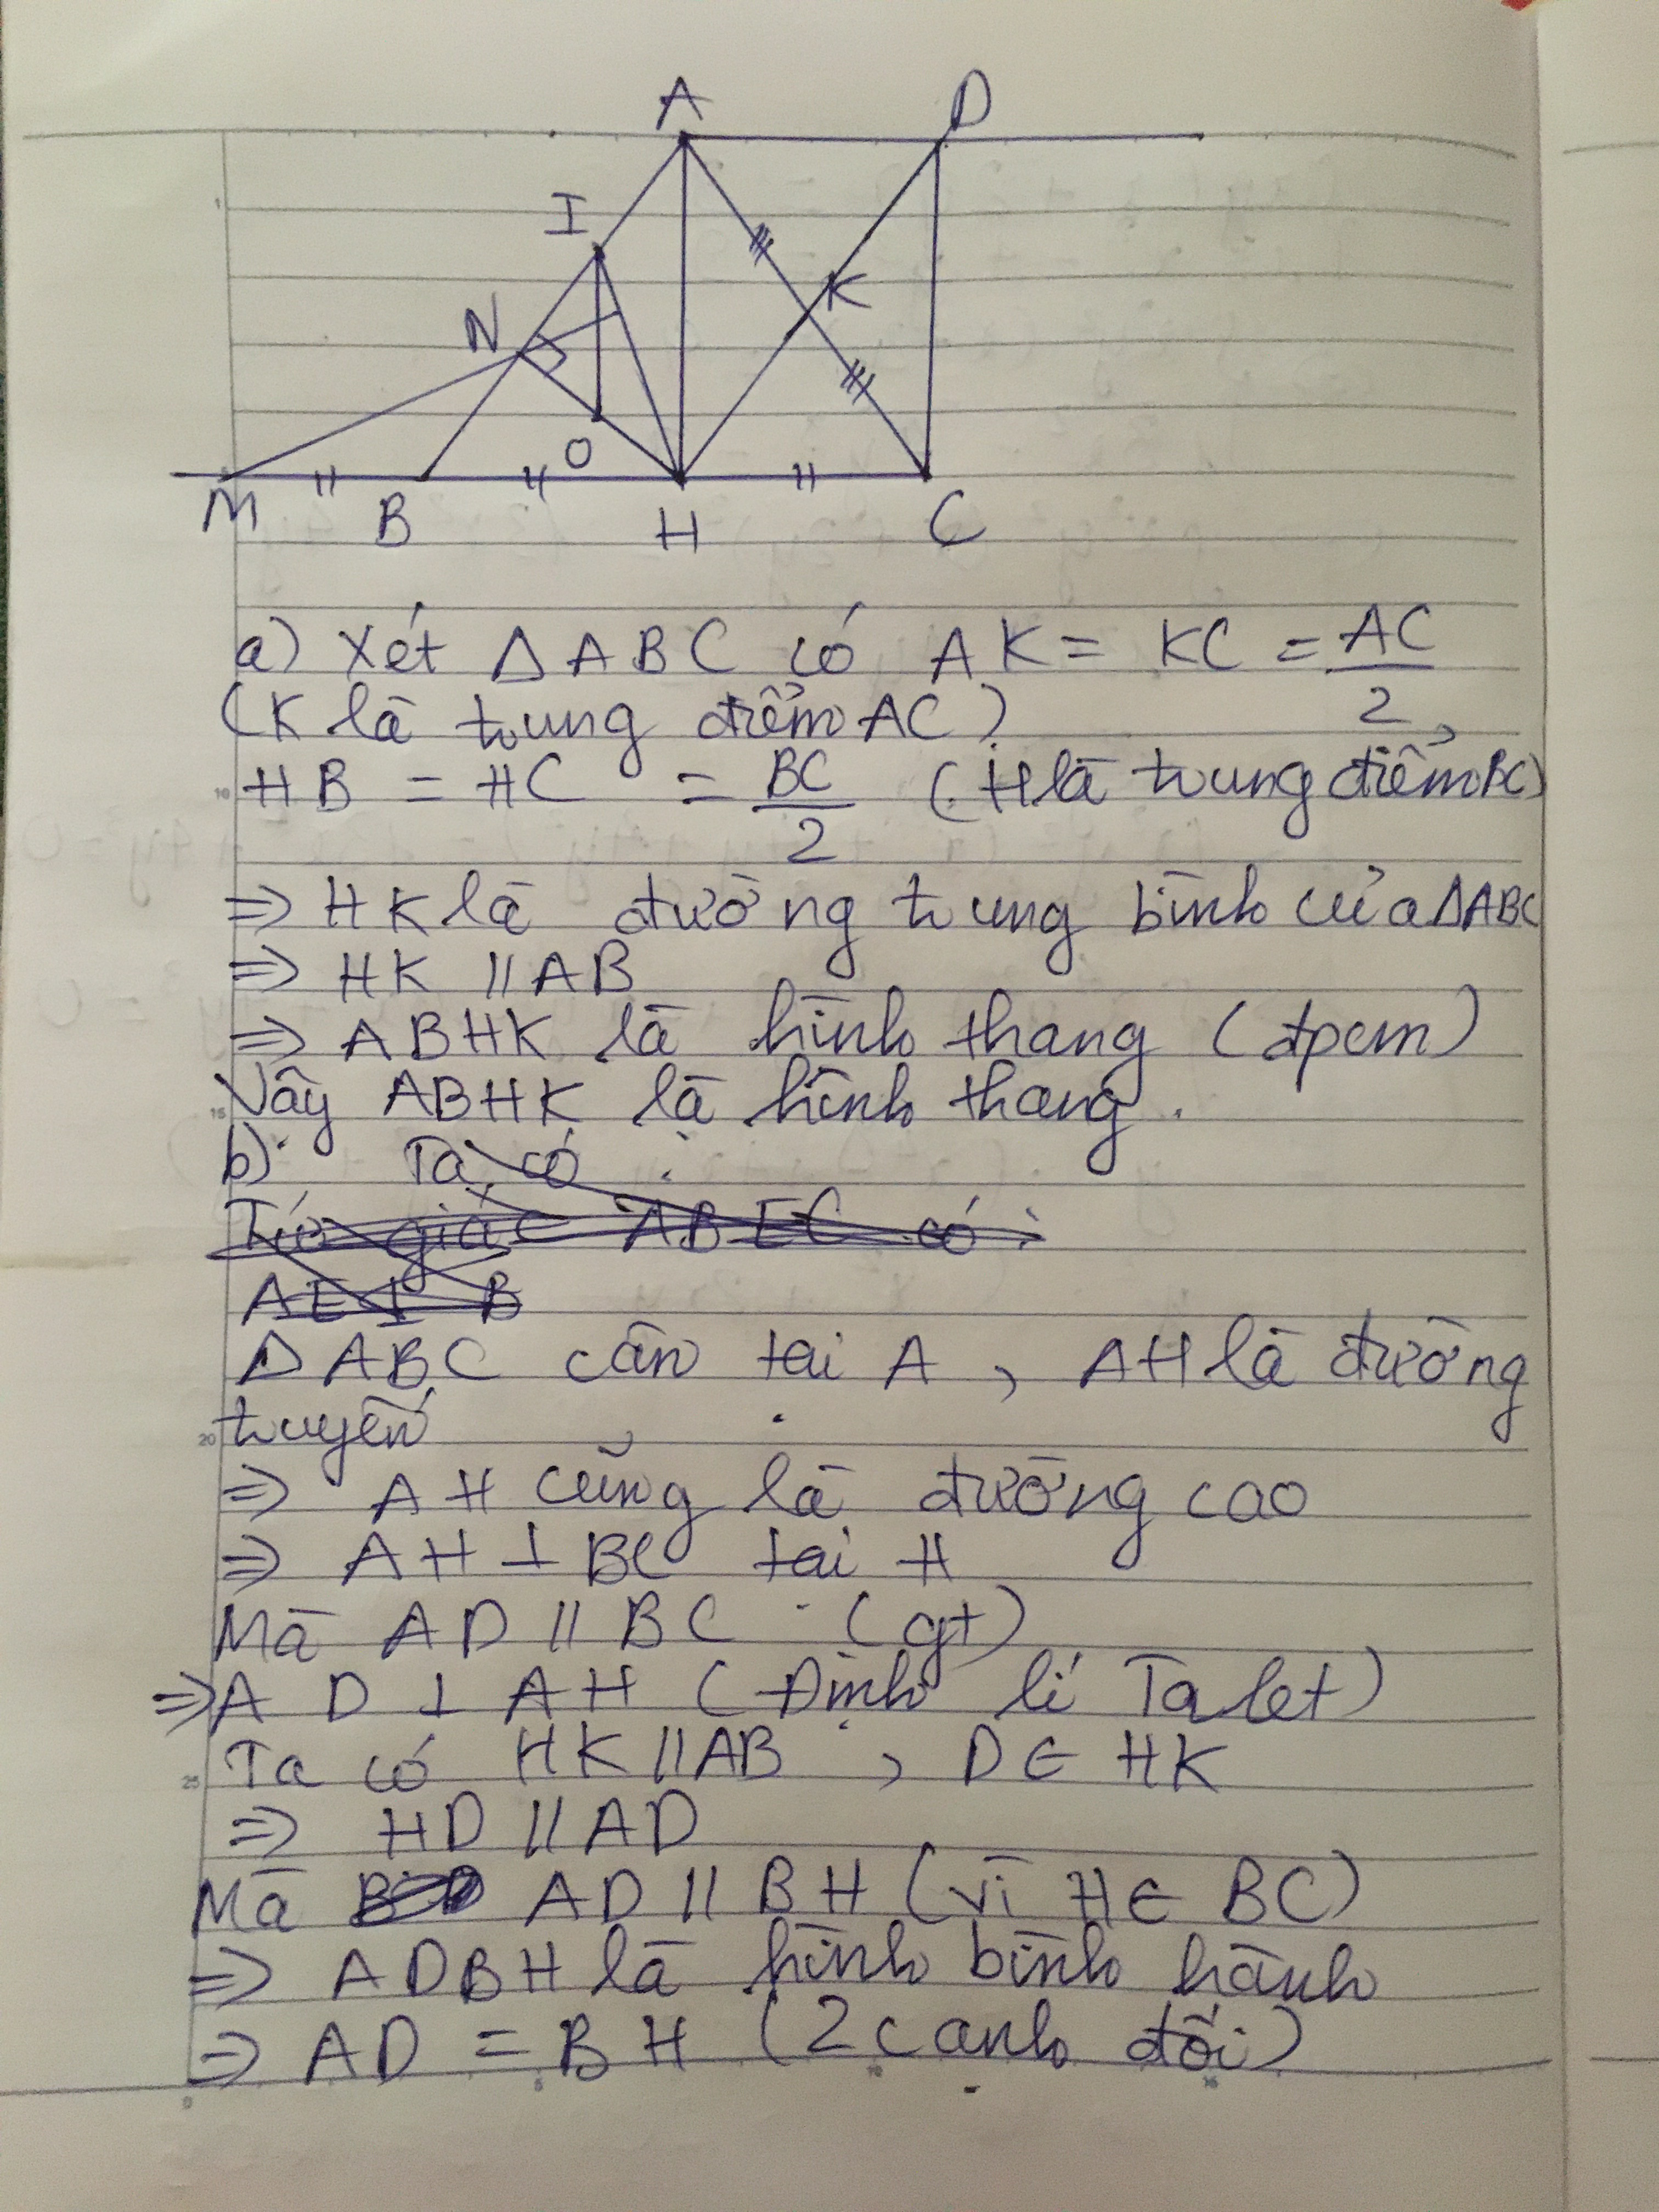 A D
I
K
N
O
M B H C
a) Xét Δ ABC có AK = KC = AC/2
(K là trung điểm AC),
HB = HC = BC/2 (H là trung điểm BC)
=> HK là đường trung bình của ΔABC
=> HK // AB
=> ABHK là hình thang (đpcm)
Vậy ABHK là hình thang.
b) Ta có :
Tứ giác ABEC có :
AE ⊥ B
Δ ABC cân tại A, AH là đường
tuyến
=> AH cũng là đường cao
=> AH ⊥ BC tại H
Mà AD // BC (gt)
=> AD ⊥ AH (Định lí Talet)
Ta có HK // AB, D ∈ HK
=> HD // AD
Mà AD // BH (vì H ∈ BC)
=> ADBH là hình bình hành
=> AD = BH (2 cạnh đối)